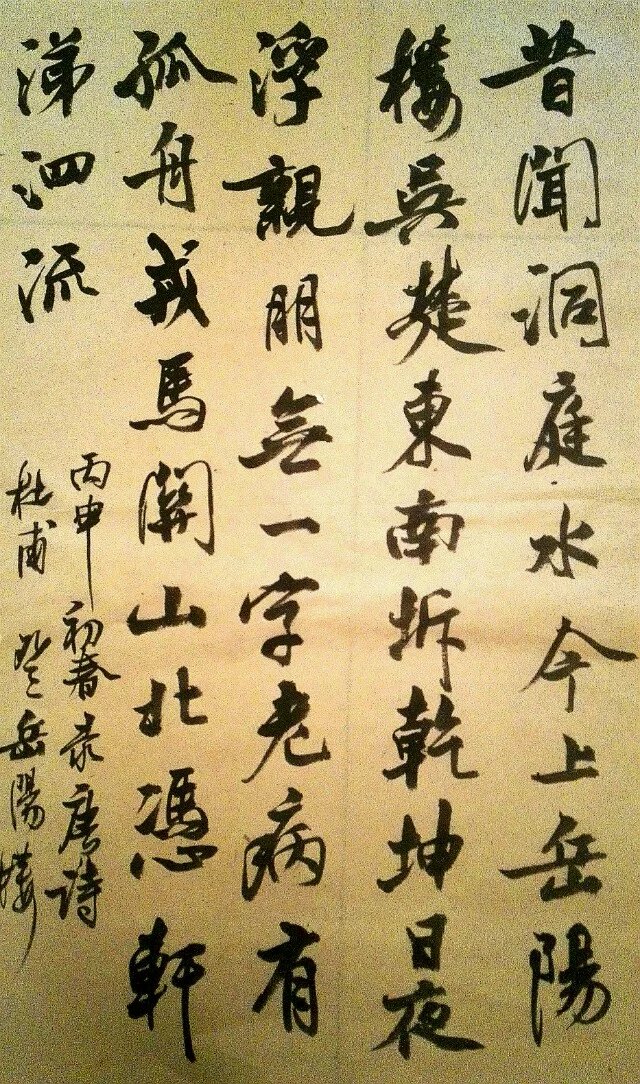 昔聞洞庭水今上岳陽
樓吳楚東南坼乾坤日夜
浮親朋無一字老病有
孤舟戎馬關山北憑軒
涕泗流
丙申初春录唐詩
杜甫登岳陽樓